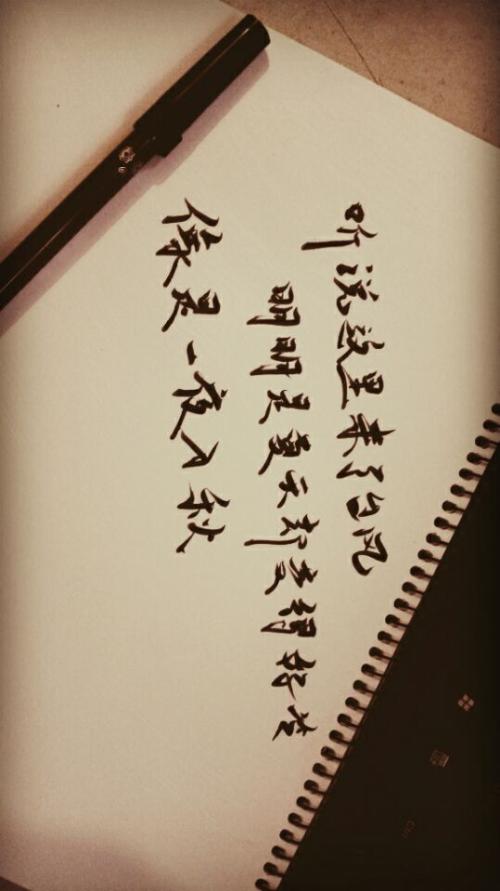 听说这里来了台风
明明是夏天却变得好冷
像是一夜入秋